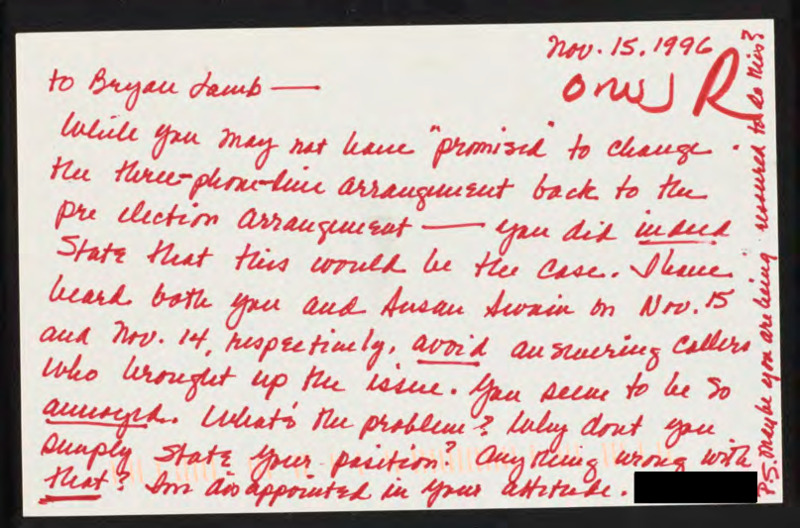 Nov. 15. 1996
to Bryan Lamb —
R
While you may not have "promised" to change
the three-phone-line arrangement back to the
pre election arrangement — you did indeed
State that this would be the case. I have
heard both you and Susan Swain on Nov. 15
and Nov. 14, respectively, avoid answering callers
who brought up the issue. You seem to be so
annoyed. What's the problem? Why dont you
simply state your position? Anything wrong with
that? Im disappointed in your attitude.
PS. Maybe you are being pressured to do this?